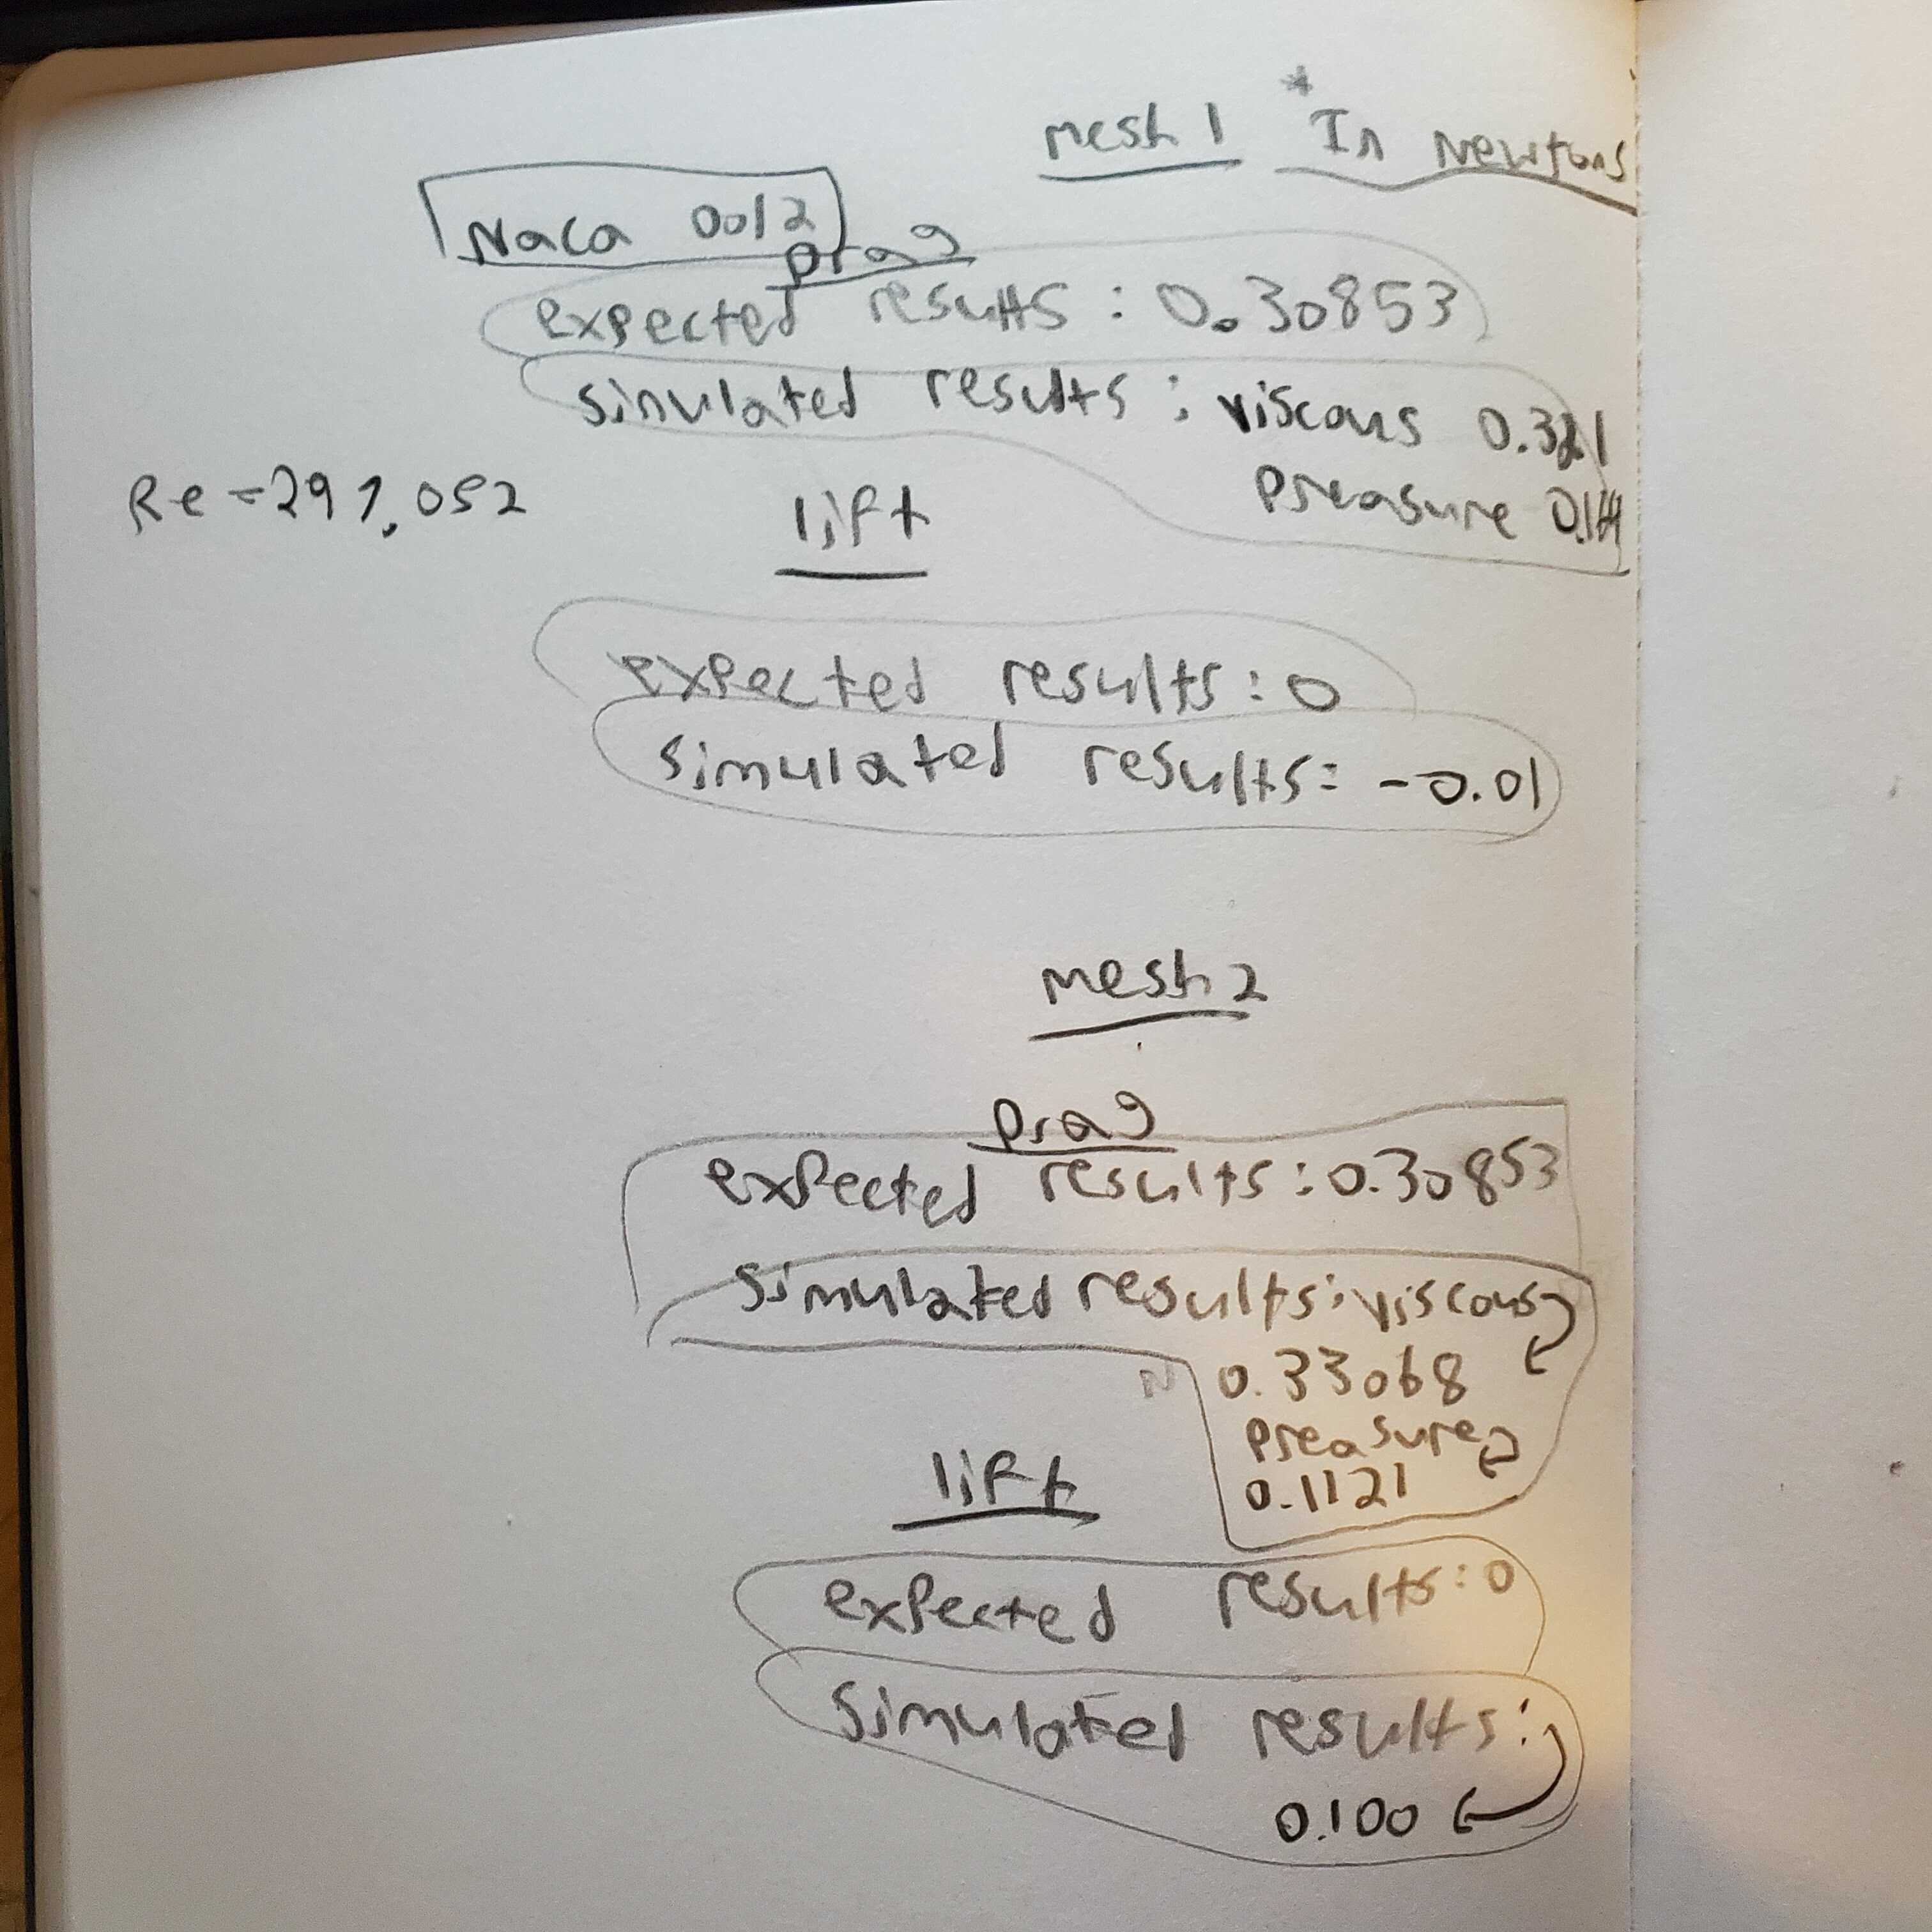 mesh 1 * In Newtons
Naca 0012
Drag
expected results : 0.30853
simulated results : viscous 0.321
Preasure
Re = 297,052
lift
expected results : 0
simulated results: -0.01
mesh 2
Drag
expected results : 0.30853
simulated results: viscous
N 0.33068
Preasure
0.1121
lift
expected results : 0
simulated results :
0.100